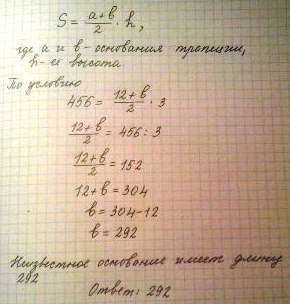 S = (a+b)/2 · h,
где a и b - основания трапеции,
h - её высота
По условию
456 = (12+b)/2 · 3
(12+b)/2 = 456 : 3
(12+b)/2 = 152
12+b = 304
b = 304-12
b = 292
Неизвестное основание имеет длину
292
Ответ: 292